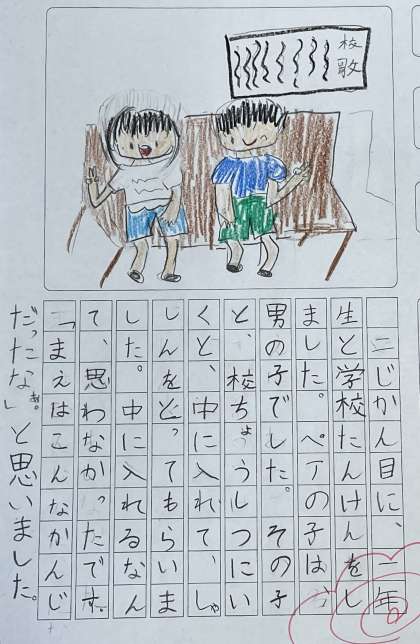 校歌
二じかん目に、一年
生と学校たんけんをし
ました。ペアの子は、
男の子でした。その子
と、校ちょうしつにい
くと、中に入れて、しゃ
しんをとってもらいま
した。中に入れるなん
て、思わなかったです。
「まえはこんなかんじ
だったな」と思いました。